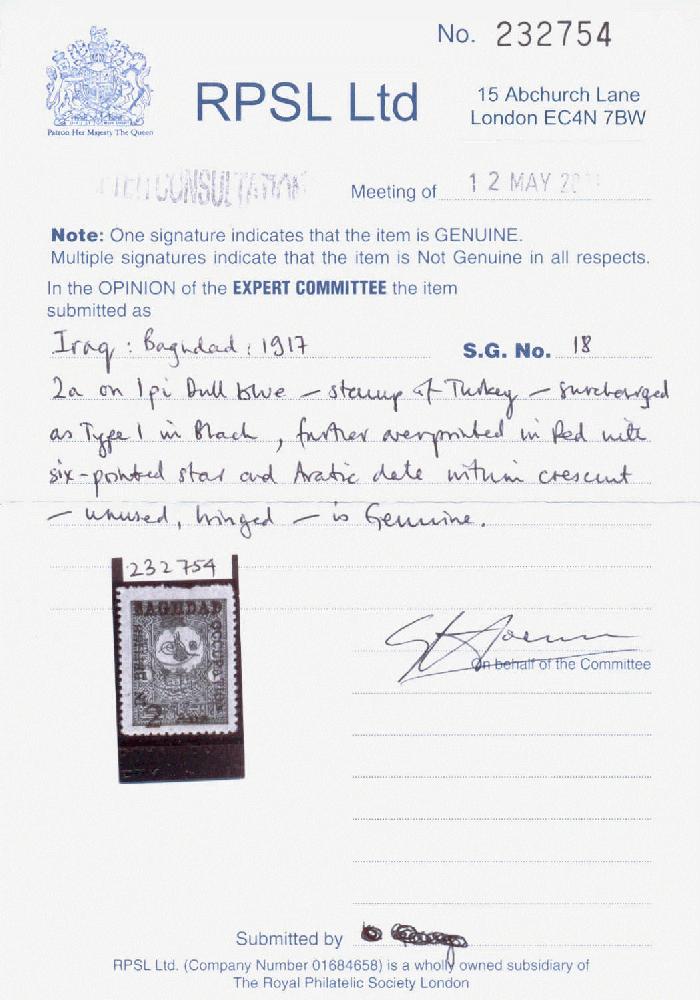 No. 232754
RPSL Ltd
15 Abchurch Lane
London EC4N 7BW
Patron Her Majesty The Queen
CONSULTATION
Meeting of 12 MAY
Note: One signature indicates that the item is GENUINE.
Multiple signatures indicate that the item is Not Genuine in all respects.
In the OPINION of the EXPERT COMMITTEE the item
submitted as
Iraq : Baghdad : 1917 S.G. No. 18
2a on 1pi Dull blue – stamp of Turkey – surcharged
as Type 1 in Black, further overprinted in Red with
six-pointed star and Arabic date within crescent
– unused, hinged – is Genuine.
232754
BAGHDAD
OCCUPATION
2
On behalf of the Committee
Submitted by
RPSL Ltd. (Company Number 01684658) is a wholly owned subsidiary of
The Royal Philatelic Society London